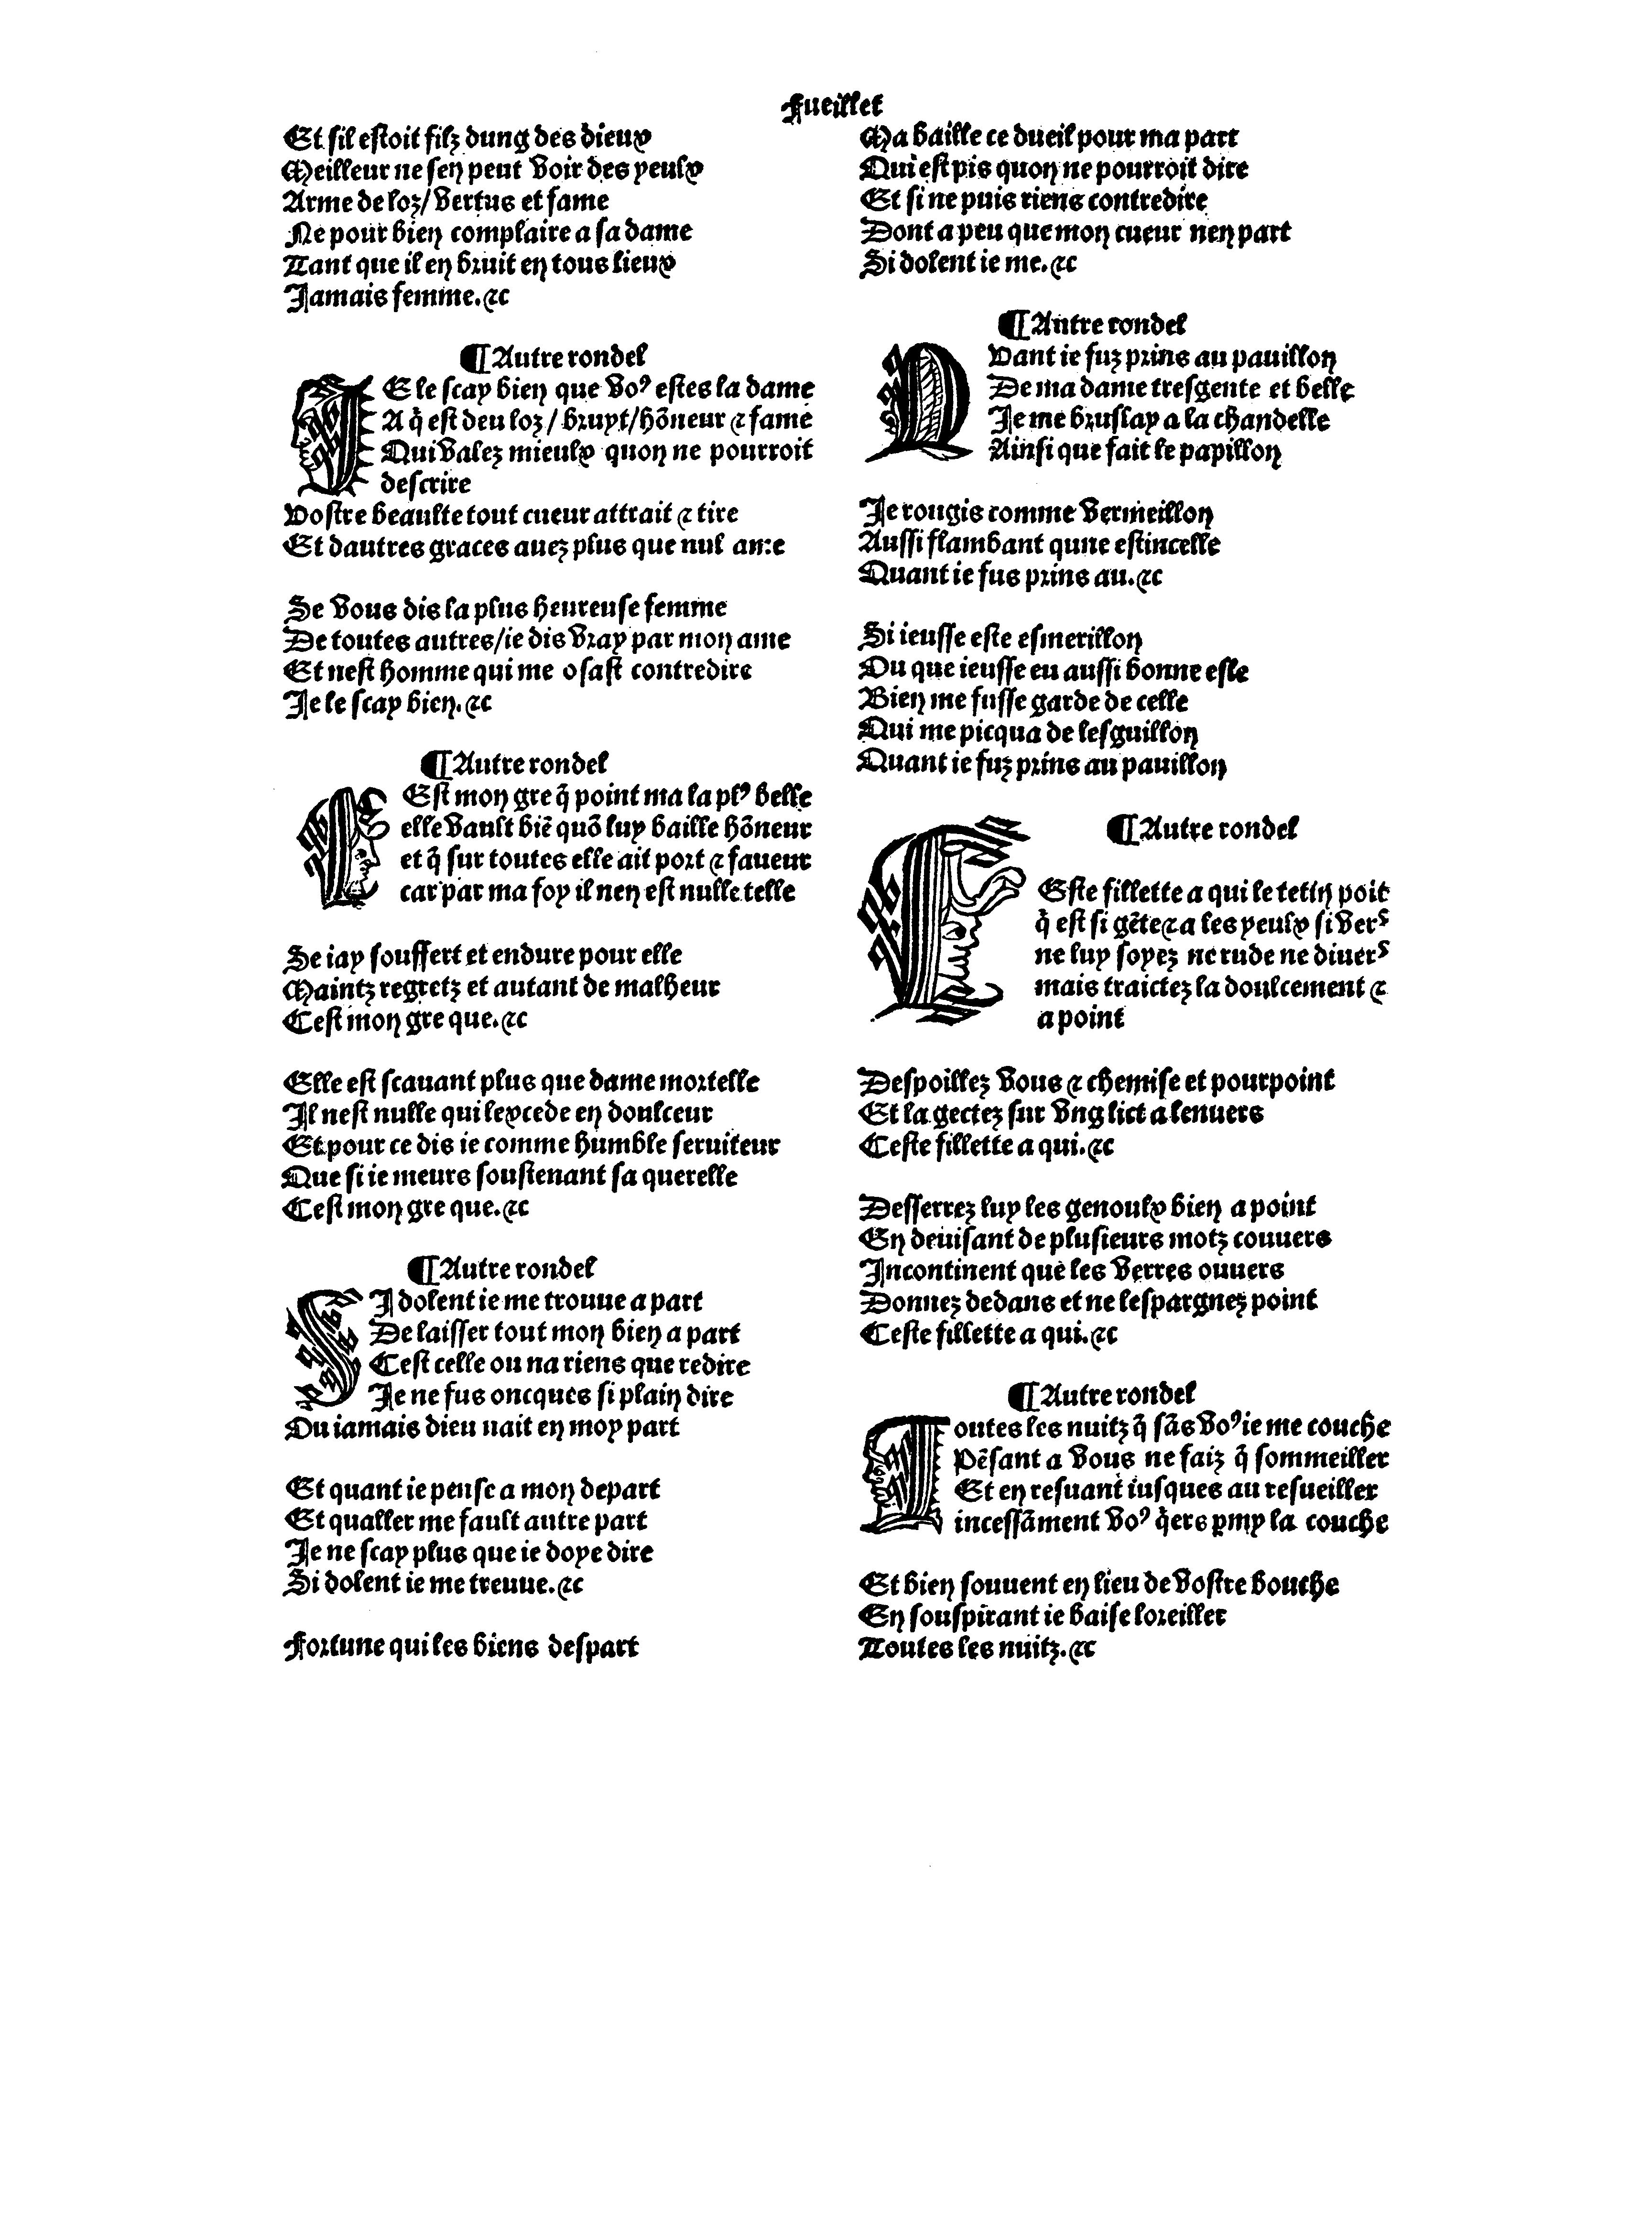 Fueillet
Et sil estoit filz dung des dieux
Meilleur ne sen peut voir des yeulx
Arme de loz/ vertus et fame
Ne pour bien complaire a sa dame
Tant que il en bruit en tous lieux
Jamais femme.⁊c
¶Autre rondel
JE le scay bien que voꝰ estes la dame
A q̇ est deu loz/ bruyt/hõneur ⁊ fame
Qui valez mieulx quon ne pourroit
descrire
Vostre beaulte tout cueur attrait ⁊ tire
Et dautres graces auez plus que nul ame
Se vous dis la plus heureuse femme
De toutes autres/ie dis vray par mon ame
Et nest homme qui me osast contredire
Je le scay bien.⁊c
¶Autre rondel
CEst mon gre q̃ point ma la plꝰ belle
elle vault biẽ quõ luy baille hõneur
et q̃ sur toutes elle ait port ⁊ faueur
car par ma foy il nen est nulle telle
Se iay souffert et endure pour elle
Maintz regretz et autant de malheur
Cest mon gre que.⁊c
Elle est scauant plus que dame mortelle
Il nest nulle qui lexcede en doulceur
Et pour ce dis ie comme humble seruiteur
Que si ie meurs soustenant sa querelle
Cest mon gre que.⁊c
¶Autre rondel
SI dolent ie me trouue a part
De laisser tout mon bien a part
Cest celle ou na riens que redire
Je ne fus oncques si plain dire
Ou iamais dieu nait en moy part
Et quant ie pense a mon depart
Et qualler me fault autre part
Je ne scay plus que ie doye dire
Si dolent ie me treuue.⁊c
Fortune qui les biens despart
Ma baille ce dueil pour ma part
Qui est pis quon ne pourroit dire
Et si ne puis riens contredire
Dont a peu que mon cueur nen part
Si dolent ie me.⁊c
¶Antre rondel
QVant ie fuz prins au pauillon
De ma dame tresgente et belle
Je me bruslay a la chandelle
Ainsi que fait le papillon
Je rougis comme vermeillon
Aussi flambant qune estincelle
Quant ie fus prins au.⁊c
Si ieusse este esmerillon
Ou que ieusse eu aussi bonne esle
Bien me fusse garde de celle
Qui me picqua de lesguillon
Quant ie fuz prins au pauillon
¶Autre rondel
CEste fillette a qui le tetin poit
q̇ est si gẽte⁊a les yeulx si verˢ
ne luy soyez ne rude ne diuerˢ
mais traictez la doulcement ⁊
a point
Despoillez vous ⁊ chemise et pourpoint
Et la gectez sur vng lict a lenuers
Ceste fillette a qui.⁊c
Desserrez luy les genoulx bien a point
En deuisant de plusieurs motz couuers
Incontinent que les verres ouuers
Donnez dedans et ne lespargnez point
Ceste fillette a qui.⁊c
¶Autre rondel
Toutes les nuitz q̃ sãs voꝰ ie me couche
Pẽsant a vous ne faiz q̃ sommeiller
Et en resuant iusques au resueiller
incessãment voꝰ q̇ers ꝑmy la couche
Et bien souuent en lieu de vostre bouche
En souspirant ie baise loreiller
Toutes les nuitz.⁊c